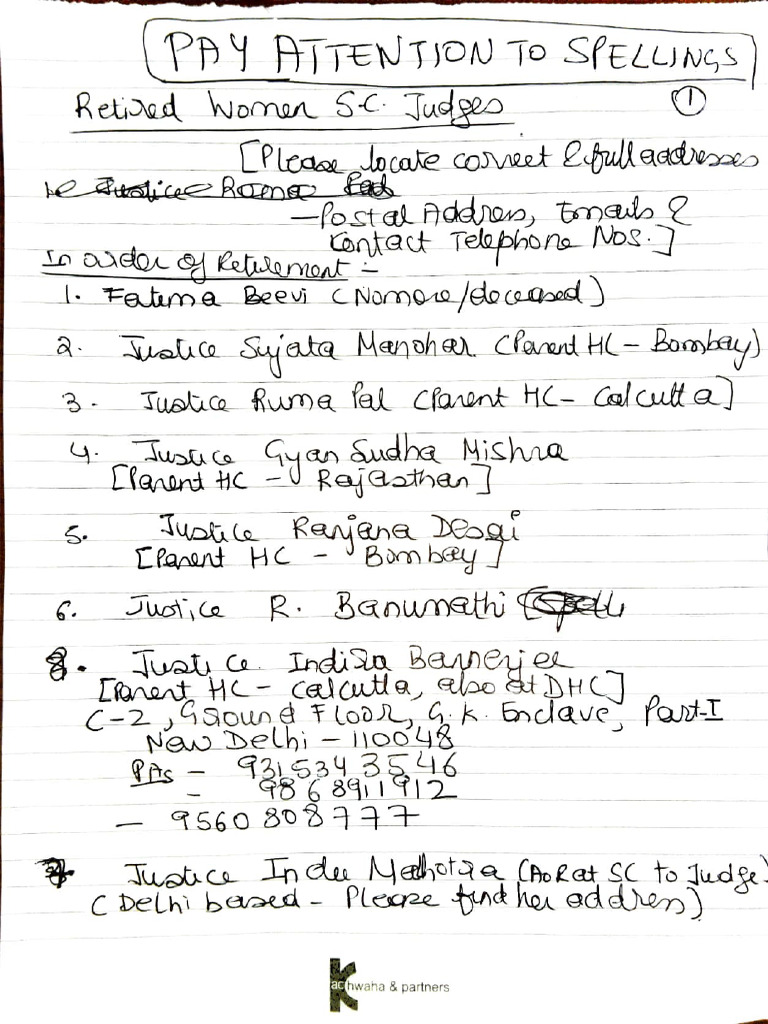 PAY ATTENTION TO SPELLINGS
Retired Women S.C. Judges ①
[Please locate correct & full addresses
Justice Ruma Pal
– Postal Address, Emails &
Contact Telephone Nos.]
In order of Retirement :-
1. Fatima Beevi (Nomore/deceased)
2. Justice Sujata Manohar (Parent HC – Bombay)
3. Justice Ruma Pal (Parent HC – Calcutta]
4. Justice Gyan Sudha Mishra
[Parent HC – Rajasthan]
5. Justice Ranjana Desai
[Parent HC – Bombay]
6. Justice R. Banumathi
8. Justice Indira Bannerjee
[Parent HC – Calcutta, also at DHC]
C-2, Ground Floor, G.K. Enclave, Part-I
New Delhi – 110048
PAs – 9315343546
– 9868911912
– 9560808777
7. Justice Indu Malhotra (AoR at SC to Judge)
(Delhi based – Please find her address)
kachwaha & partners